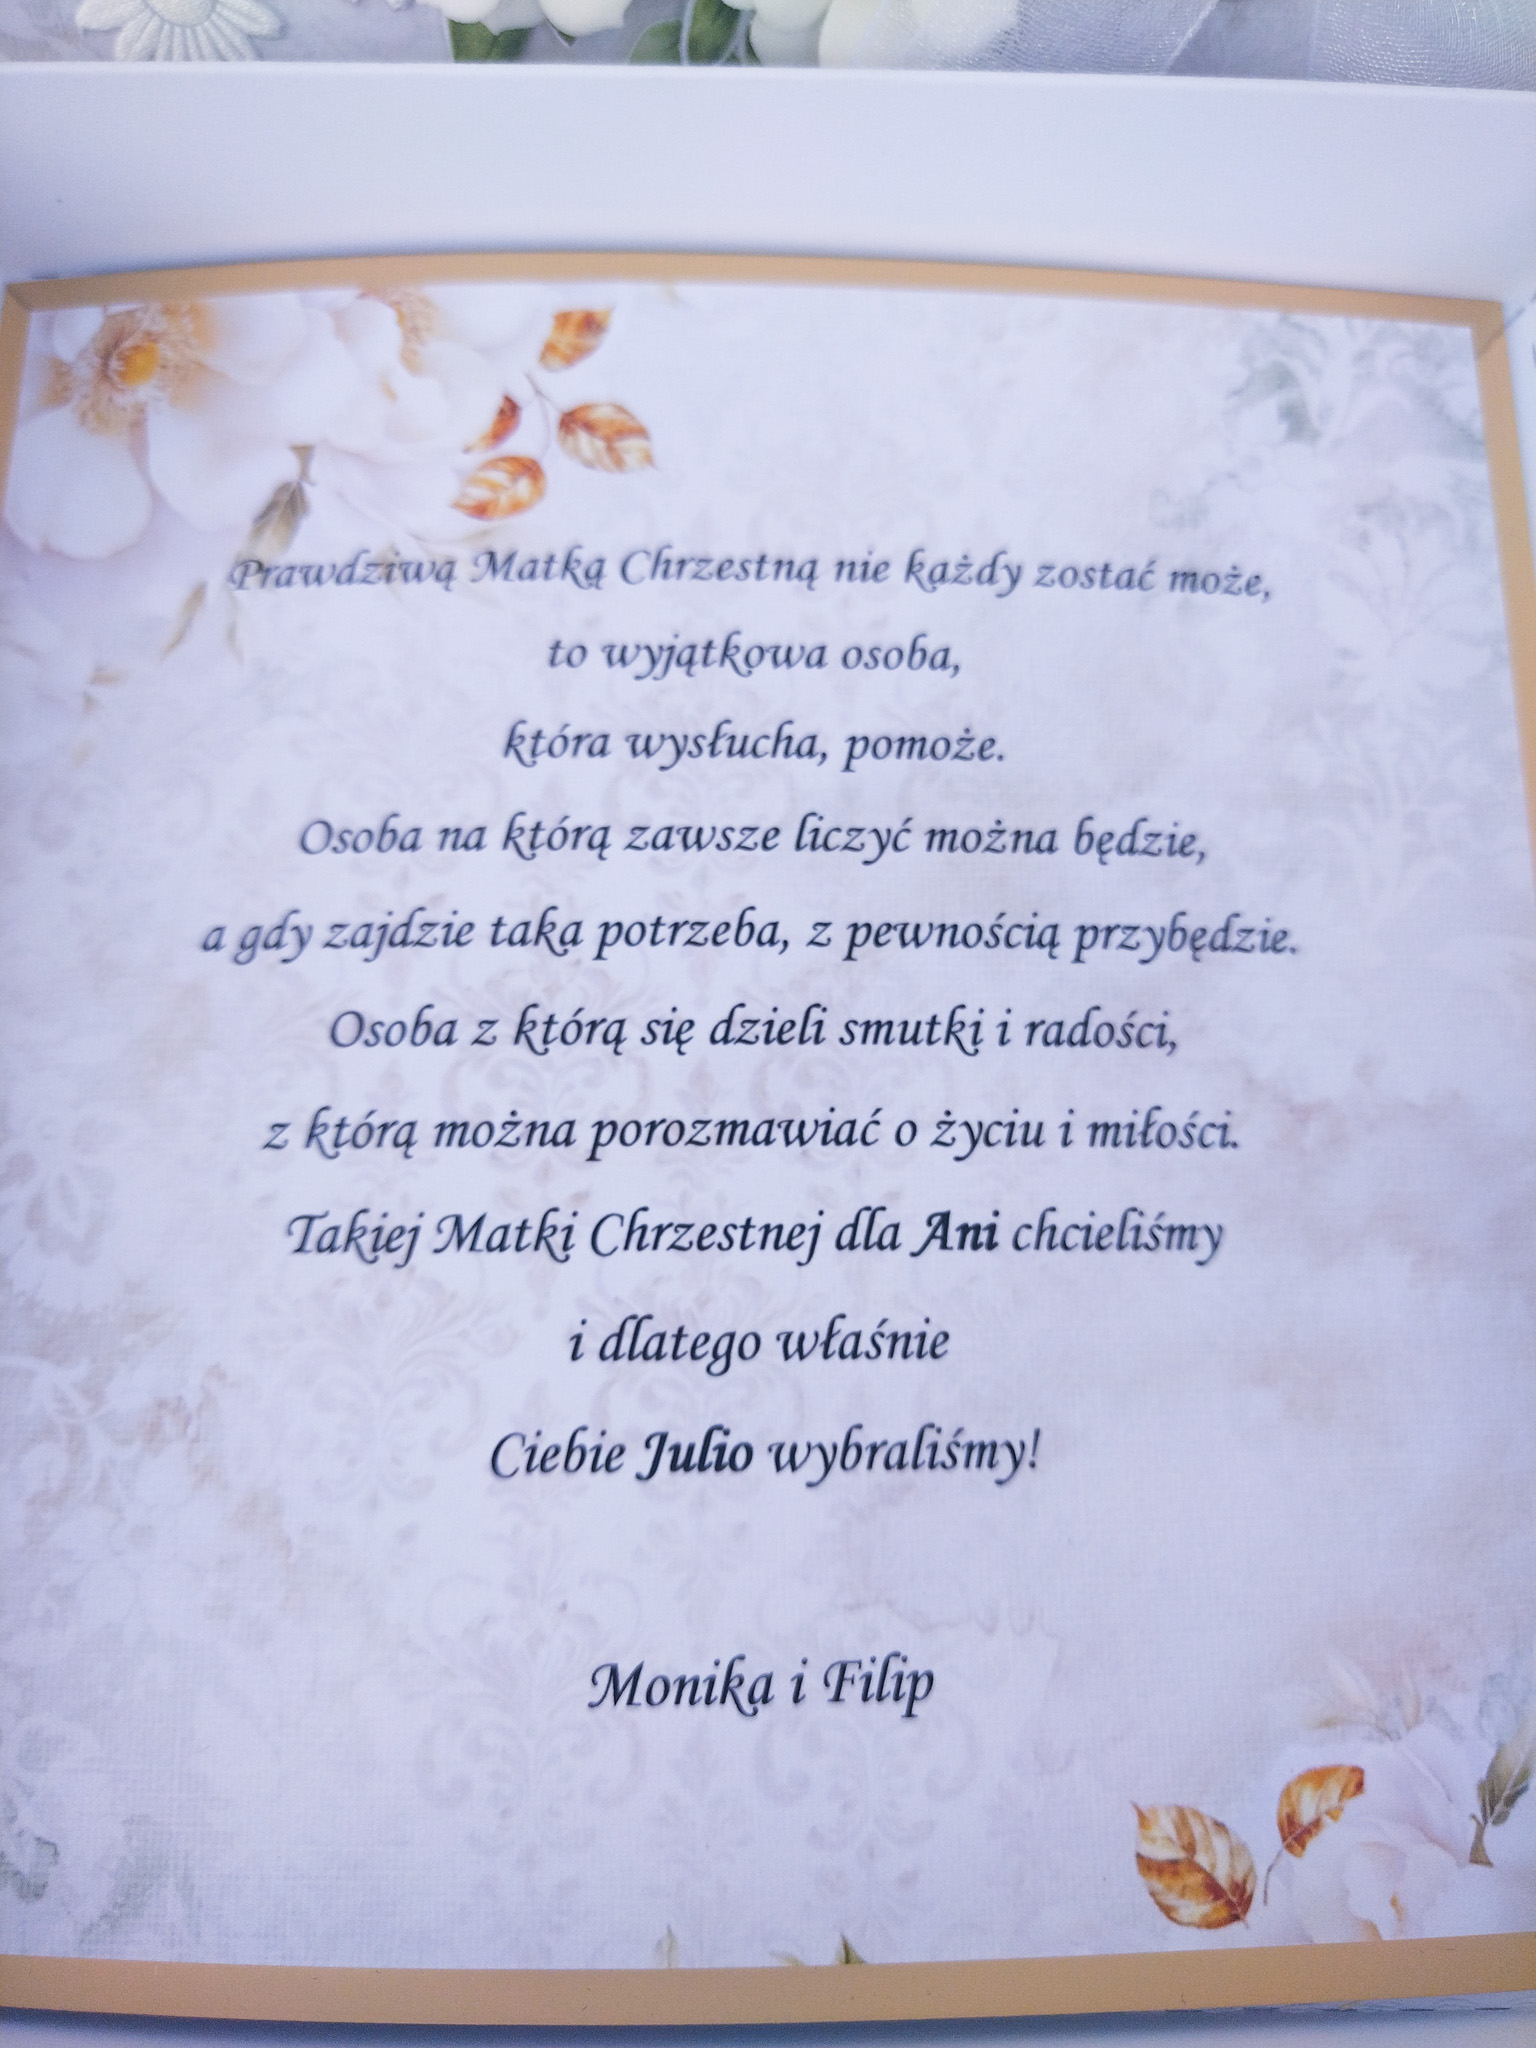 Prawdziwą Matką Chrzestną nie każdy zostać może,
to wyjątkowa osoba,
która wysłucha, pomoże.
Osoba na którą zawsze liczyć można będzie,
a gdy zajdzie taka potrzeba, z pewnością przybędzie.
Osoba z którą się dzieli smutki i radości,
z którą można porozmawiać o życiu i miłości.
Takiej Matki Chrzestnej dla Ani chcieliśmy
i dlatego właśnie
Ciebie Julio wybraliśmy!
Monika i Filip